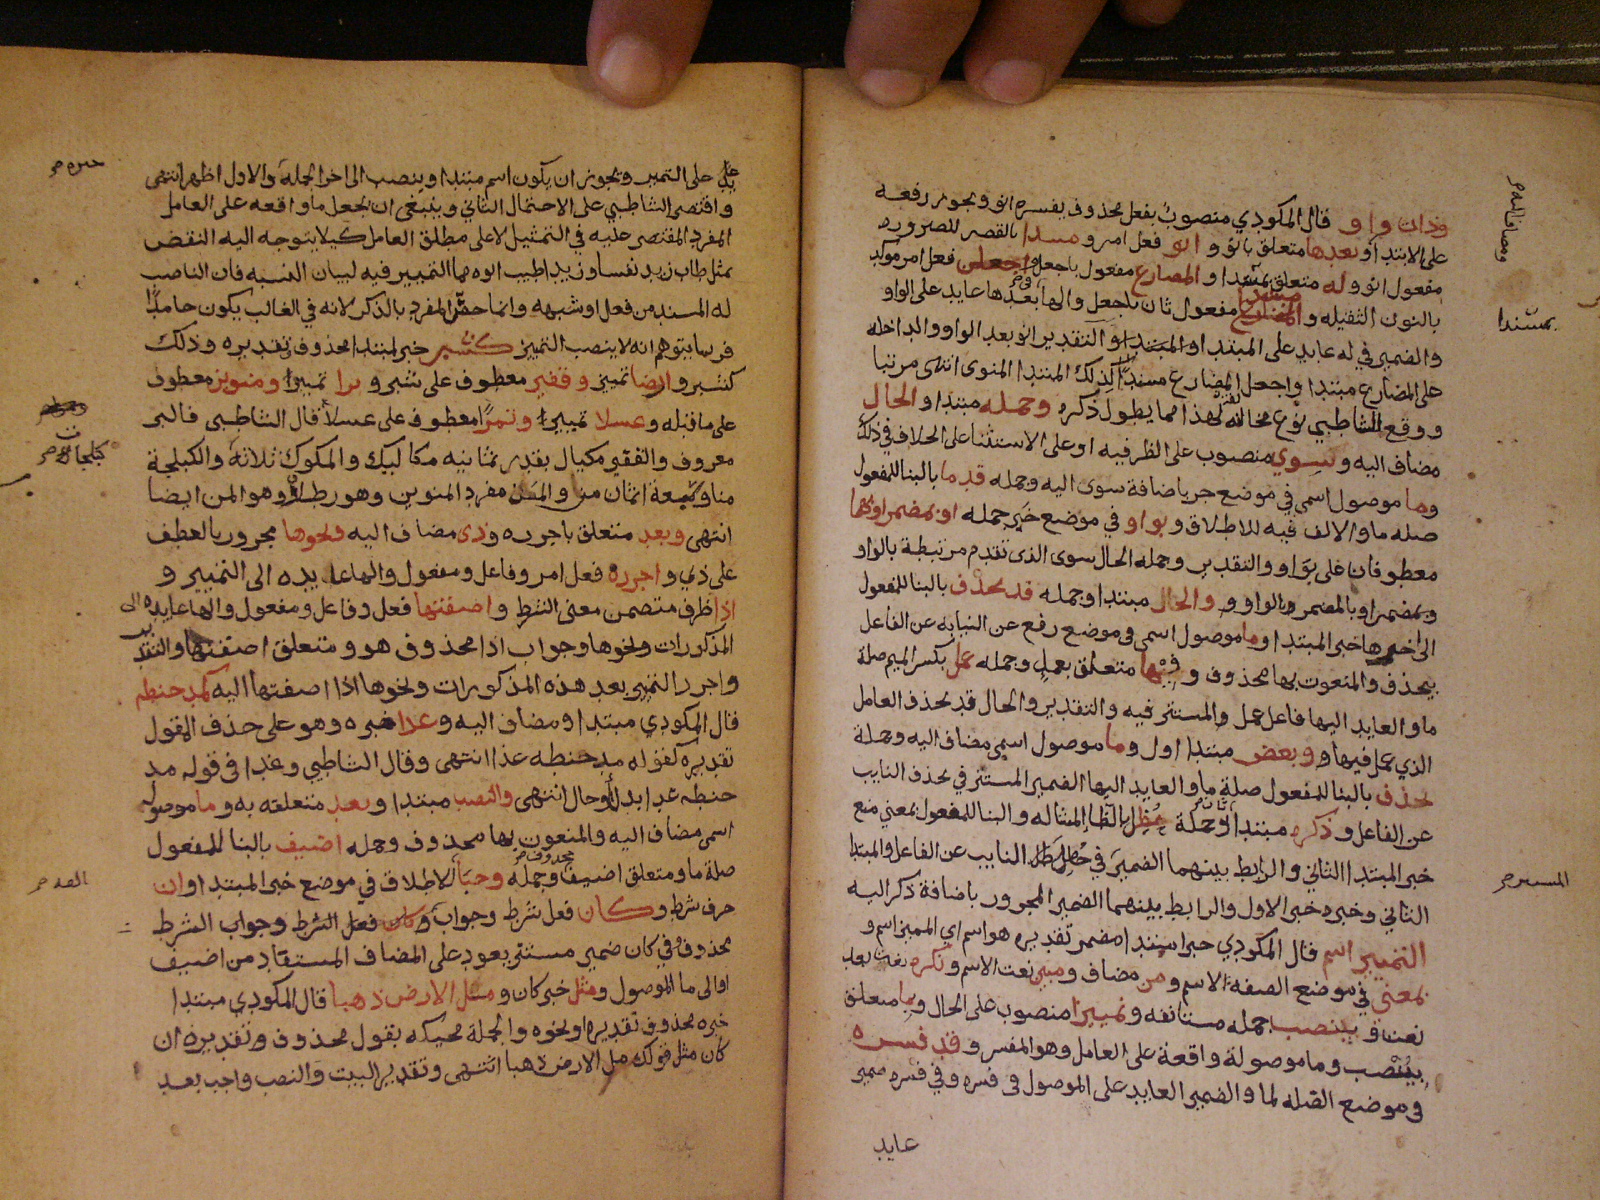 وذات واو قال المكودي منصوب بفعل محذوف يفسره انو ويجوز رفعه
على الابتدا وبعدها متعلق بانو و انو فعل امر و مبتدا بالقصر للضرورة
مفعول انو و له متعلق بمسندا و المضارع مفعول باجعل و اجعلن فعل امر موكد
بالنون الثقيله و مسندا مفعول ثان باجعل والها في بعدها عايد على الواو
والضمير في له عايد على المبتدا والتقدير انو بعد الواو الداخله
على المضارع مبتدا واجعل المضارع مسندا لذلك المبتدا المنوي انتهى مرتبا
ووقع للشاطبي نوع مخالفة لهذا مما يطول ذكره وجمله مبتدا و الحال
مضاف اليه و سوي منصوب على الظرفيه او على الاستثنا على الخلاف في ذلك
وما موصول اسمي في موضع جر باضافة سوى اليه وجمله قد ما بالبنا للمفعول
صله ما والالف فيه للاطلاق و بواو في موضع خبر جمله او بمضمر او بهما
معطوفان على بواو والتقدير وجمله الحال سوى الذى تقدم مرتبطة بالواو
وبمضمر او بالمضمر والواو و والحال مبتدا وجمله قد يحذف بالبنا للمفعول
الى اخرها خبر المبتدا وما موصول اسمى فى موضع رفع عن النيابه عن الفاعل
بيحذف والمنعوت بها محذوف و فيها متعلق بعمل وجمله عمل بكسر الميم صلة
ما والعايد اليها فاعل عمل والمستتر فيه والتقدير والحال قد يحذف العامل
الذي عمل فيها و وبعض مبتدا اول وما موصول اسمي مضاف اليه وجملة
يحذف بالبنا للمفعول صلة ما والعايد اليها الضمير المستتر في يحذف النايب
عن الفاعل و ذكره مبتدا ثان وجملة حظل بالظا المشاله والبنا للمفعول بمعني منع
خبر المبتدا الثاني والرابط بينهما الضمير في حظل النايب عن الفاعل والمبتدا
الثاني وخبره خبر الاول والرابط بينهما الضمير المجرور باضافة ذكر اليه
التمييز اسم قال المكودي خبر ابتدا مضمر تقديره هو اسم اي المميز اسم و
بمعني في موضع الصفه لاسم و من مضاف و مبين نعت الاسم و نكره نعت بعد
نعت و ينصب جمله مستانفه و تمييزا منصوب على الحال و بما متعلق
بينصب وما موصولة واقعة على العامل وهو المفسر و قد فسره
في موضع الصله لما والضمير العايد على الموصول فى فسره وفي فسره ضمير
عايد
ومضاف اليه صح
بمسندا
المستتر صح
على التمييز ويجوز ان يكون اسم مبتدا وينصب الى اخر الجملة والاول اظهر انتهى
واقتصر الشاطبي على الاحتمال الثاني وينبغي ان يجعل ما واقعه على العامل
المفرد المقتصر عليه في التمثيل لا على مطلق العامل كيلا يتوجه اليه النقض
بمثل طاب زيد نفسا وزيد اطيب ابوه بها التمييز فيه لبيان النسبه فان الناصب
له المسند من فعل او شبهه وانما خص المفرد بالذكر لانه في الغالب يكون جامدا
فربما يتوهم انه لا ينصب التمييز كشبر خبر لمبتدا محذوف تقديره وذلك
كشبر و ارضا تمييز و قفيز معطوف على شبر و برا تمييز و منوين معطوف
على ما قبله و عسلا تمييز و تمرا معطوف على عسلا قال الشاطبي فالبر
معروف والقفيز مكيال بقدر ثمانيه مكاكيك والمكوك ثلاثة والكيلجة
منا وسبعة اثمان من والمن مفرد المنوين وهو رطلان وهو المن ايضا
انتهى وبعد متعلق باجرره و ذى مضاف اليه ونحوها مجرور بالعطف
على ذي و اجرره فعل امر وفاعل ومفعول والها عايده الى التمييز و
اذا ظرف متضمن معنى الشرط و اضفتها فعل وفاعل ومفعول والها عايده الى
المذكورات ونحوها وجواب اذا محذوف هو ومتعلق اضفتها والتقدير
واجرر التمييز بعد هذه المذكورات ونحوها اذا اضفتها اليه كمد حنطه
قال المكودي مبتدا ومضاف اليه و غذا خبره وهو على حذف القول
تقديره كقوله مد حنطه غذا انتهى وقال الشاطبي وغذا في قوله مد
حنطه غذا بدل او حال انتهى والنصب مبتدا و بعد متعلقه به وما موصول
اسمى مضاف اليه والمنعوت بها محذوف وجمله اضيف بالبنا للمفعول
صلة ما ومتعلق اضيف محذوف وجمله وجبا بالف الاطلاق في موضع خبر المبتدا و ان
حرف شرط و كان فعل شرط وجواب و كان فعل الشرط وجواب الشرط
محذوف وفي كان ضمير مستتر يعود على المضاف المستفاد من اضيف
او الى ما الموصول و مثل خبر كان و مثل الارض ذهبا قال المكودي مبتدا
خبره محذوف تقديره او نحوه والجملة محكيه بقول محذوف وتقديره ان
كان مثل قولك مل الارض ذهبا انتهى وتقدير البيت والنصب واجب بعد
خبره صح
كيلجات صح